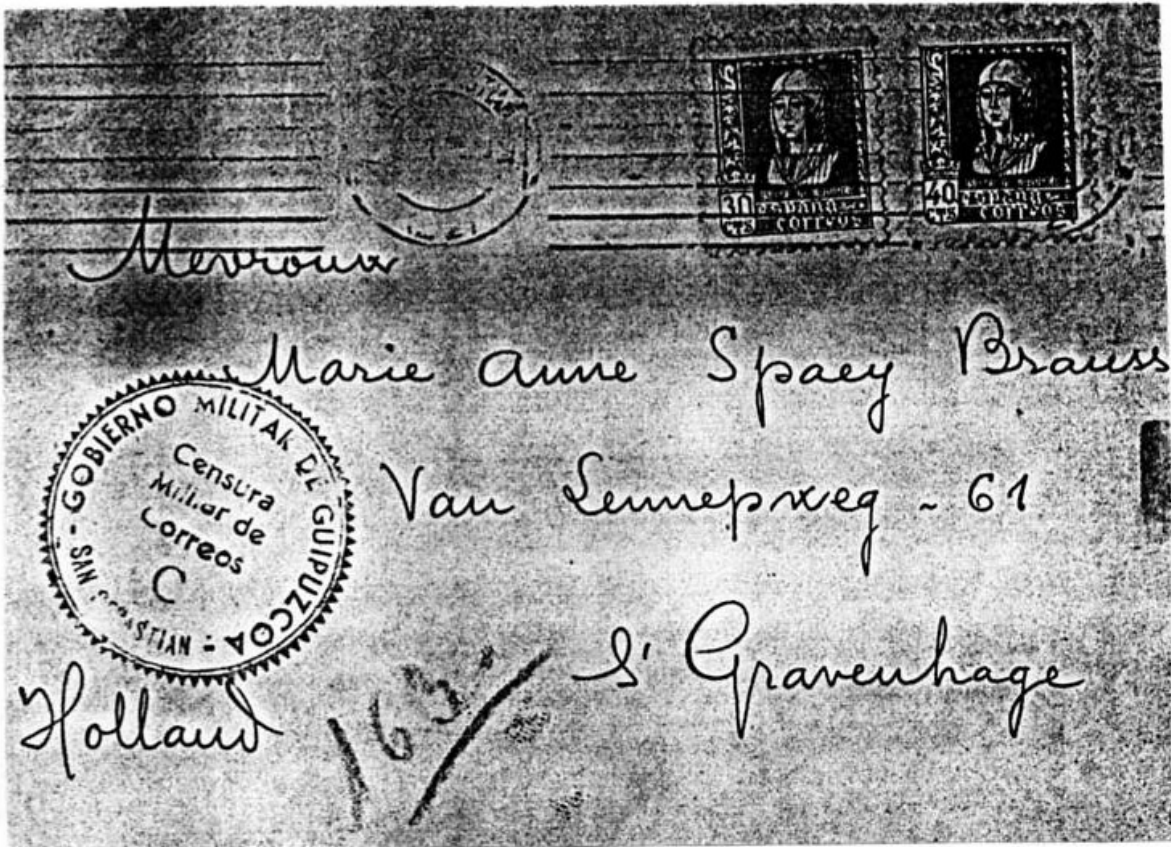 30
CTS
ESPAÑA
CORREOS
40
CTS
ESPAÑA
CORREOS
Mevrouw
Marie Anne Spaey Brauss
Van Lennepweg - 61
S' Gravenhage
Holland
GOBIERNO MILITAR DE GUIPUZCOA
- SAN SEBASTIAN -
Censura
Militar de
Correos
C
163